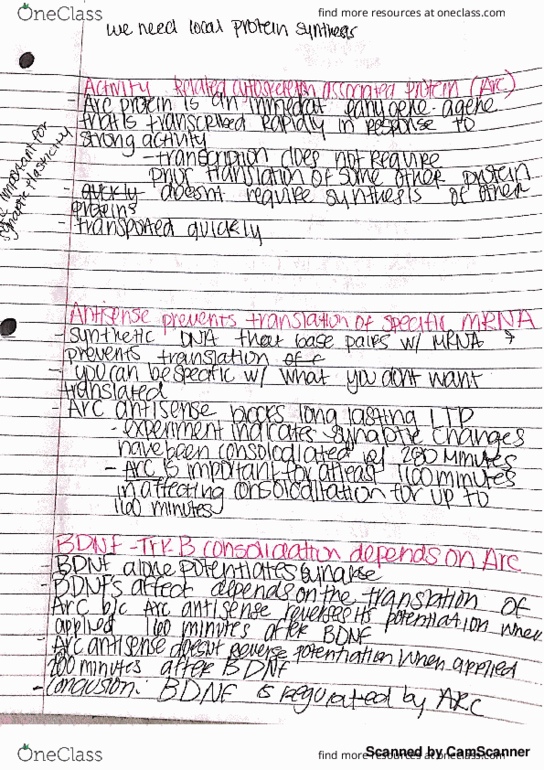 OneClass
find more resources at oneclass.com
we need local protein synthesis
Activity Related cytoskeleton associated protein (Arc)
- Arc protein is an immediate early gene - a gene
that is transcribed rapidly in response to
strong activity
- transcription does not require
prior translation of some other protein
- quickly doesn't require synthesis of other
proteins
- transported quickly
important for
synaptic plasticity
Antisense prevents translation of specific mRNA
- synthetic DNA that base pairs w/ mRNA →
prevents translation of
- you can be specific w/ what you don't want
translated
- Arc antisense blocks long lasting LTP
- experiment indicates synaptic changes
have been consolidated by 280 minutes
- Arc is important for atleast 160 minutes
in affecting consolidation for up to
160 minutes
BDNF - TrkB consolidation depends on Arc
- BDNF alone potentiates synapse
BDNF's affect depends on the translation of
Arc b/c Arc antisense reverses its potentiation when
applied 160 minutes after BDNF
- Arc antisense doesnt reverse potentiation when applied
200 minutes after BDNF
- conclusion: BDNF is regulated by ARC
OneClass
find more resources at oneclass.com
Scanned by CamScanner